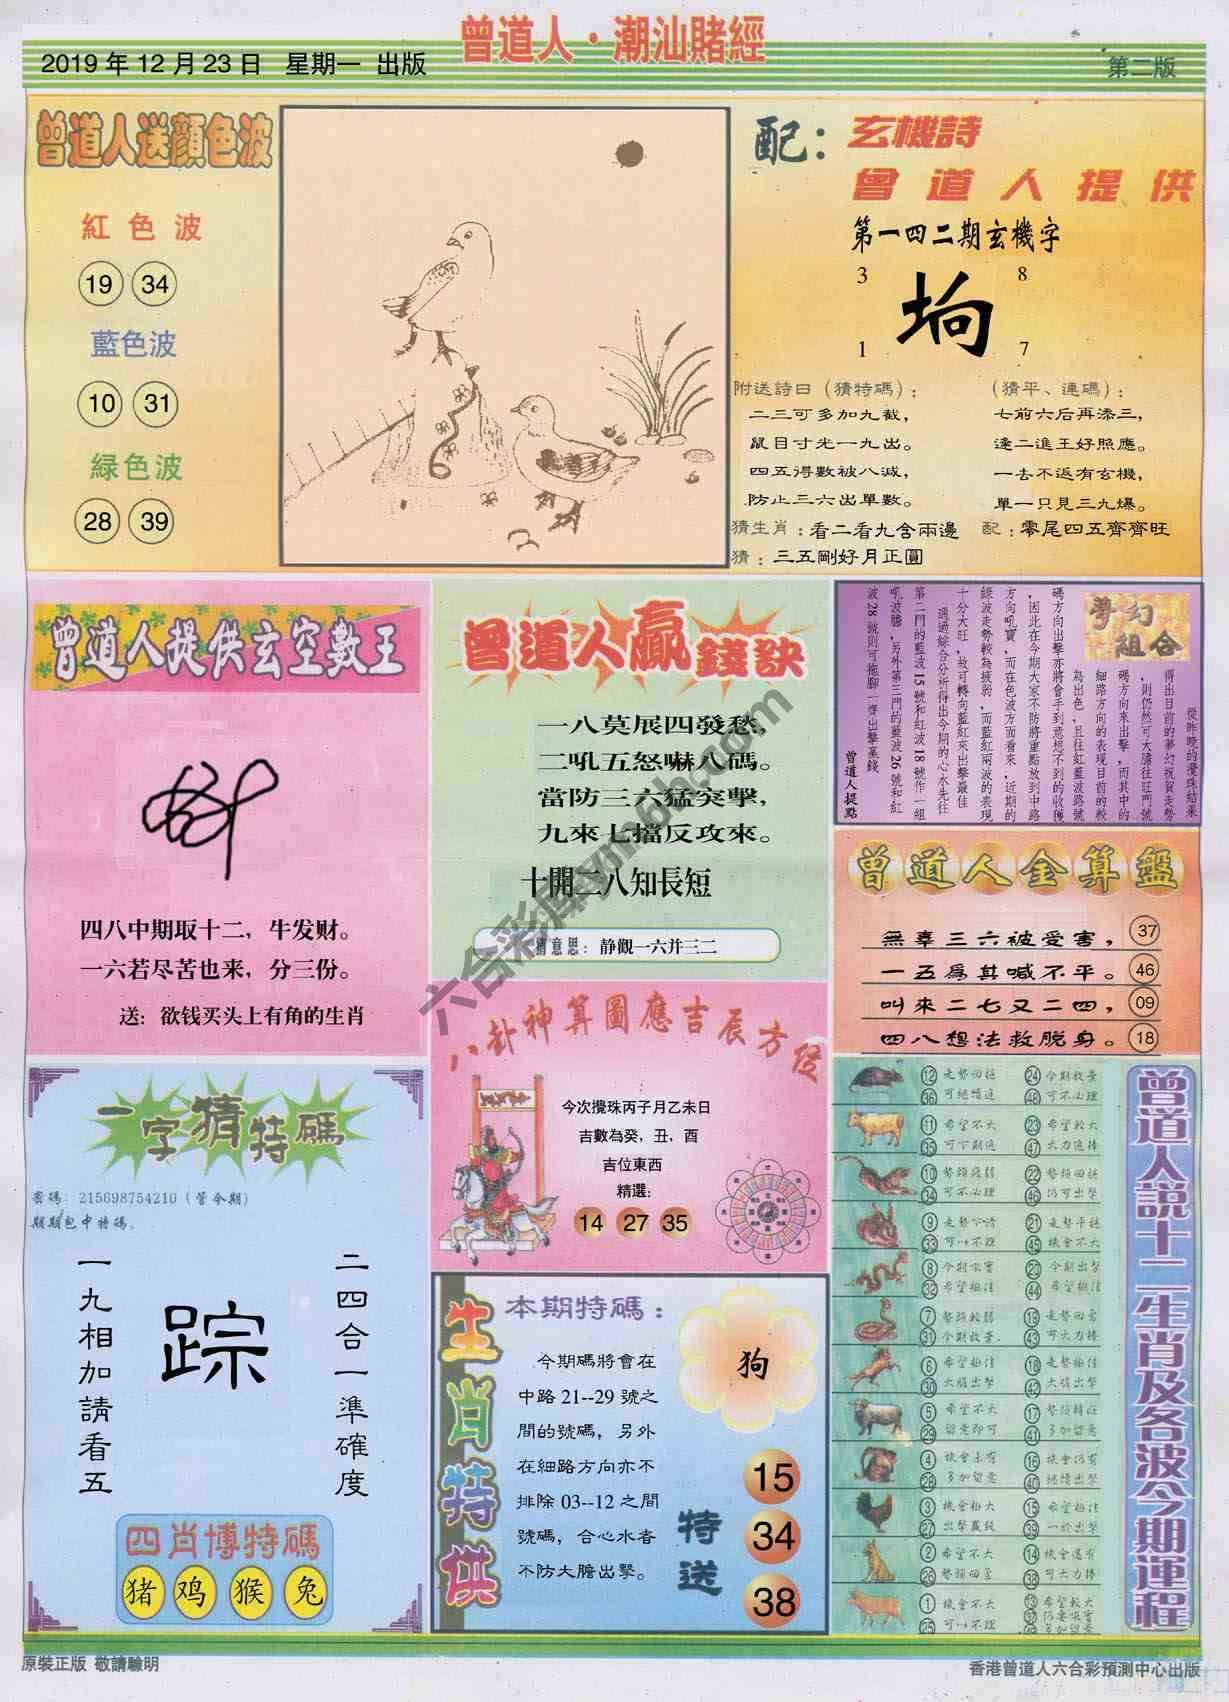 曾道人·潮汕賭經
2019年12月23日 星期一 出版
第二版
曾道人送顏色波
紅色波
19 34
藍色波
10 31
緑色波
28 39
配：玄機詩
曾道人提供
第一四二期玄機字
3 8
垧
1 7
附送詩曰（猜特碼）：
二三可多加九截，
鼠目寸光一九出。
四五得數被八減，
防止三六出單數。
（猜平、連碼）：
七前六后再添三，
逢二進王好照應。
一去不返有玄機，
單一只見三九爆。
猜生肖：看二看九含兩邊
配：零尾四五齊齊旺
猜：三五剛好月正圓
曾道人提供玄空數王
四八中期取十二，牛发财。
一六若尽苦也来，分三份。
送：欲钱买头上有角的生肖
曾道人贏錢訣
一八莫展四發愁，
二吼五怒嚇八碼。
當防三六猛突擊，
九來七擋反攻來。
十開二八知長短
猜意思：静觀一六并三二
夢幻組合
從昨晚的攪珠結果
得出目前的夢幻祝賀走勢
，則仍然可大膽往旺門號
碼方向來出擊，而其中的
細路方向的表現目前的較
為出色，且往紅藍波路號
碼方向出擊亦將會手到意想不到的收穫
，因此在今期大家不防將重點放到中路
方向吼寶，而在色波方面看來，近期的
綠波走勢較為疲弱，而藍紅兩波的表現
十分大旺，故可轉向藍紅來出擊最佳
通過綜合分析得出今期的心水先往
第二門的藍波15號和紅波18號作一組
吼波膽，另外第三門的藍波26號和紅
波28號則可拖腳一齊出擊贏錢
曾道人提點
曾道人金算盤
無辜三六被受害， 37
一五爲其喊不平。 46
叫來二七又二四， 09
四八想法救脱身。 18
八卦神算圖應吉辰方位
今次攪珠丙子月乙未日
吉數為癸，丑，酉
吉位東西
精選：
14 27 35
一字猜特碼
密碼：215698754210（管今期）
期期包中特碼。
二四合一準確度
踪
一九相加請看五
四肖博特碼
猪 鸡 猴 兔
生肖特供
本期特碼：
今期碼將會在
中路21--29號之
間的號碼，另外
在細路方向亦不
排除03--12之間
號碼，合心水者
不防大膽出擊。
狗
特送
15
34
38
曾道人説十二生肖及各波今期運程
12 走勢回穩 24 今期放暈
36 可繼續追 48 可不必理
11 希望不大 23 希望較大
35 可下期追 47 大力追捧
10 勢頭疲弱 22 勢頭回穩
34 可不必理 46 仍可出擊
9 走勢下滑 21 走勢平穩
33 可以不理 45 機會不大
8 今期吼實 20 今期出擊
32 希望極佳 44 希望極佳
7 勢頭較弱 19 走勢回勇
31 今期放暈 43 可大力捧
6 希望極佳 18 走勢極佳
30 大膽出擊 42 大膽出擊
5 希望不大 17 勢頭轉旺
29 留意即可 41 多加留意
4 機會未有 16 機會仍有
28 多加留意 40 繼續出擊
3 機會極大 15 希望極佳
27 出擊贏錢 39 一於出擊
2 希望不大 14 機會還有
26 勢頭回落 38 可大力捧
1 機會不大 13 希望較大
25 可以不理 37 仍要吼實
49 多加留意
原裝正版 敬請驗明
香港曾道人六合彩預測中心出版
六合彩库ymbh.com